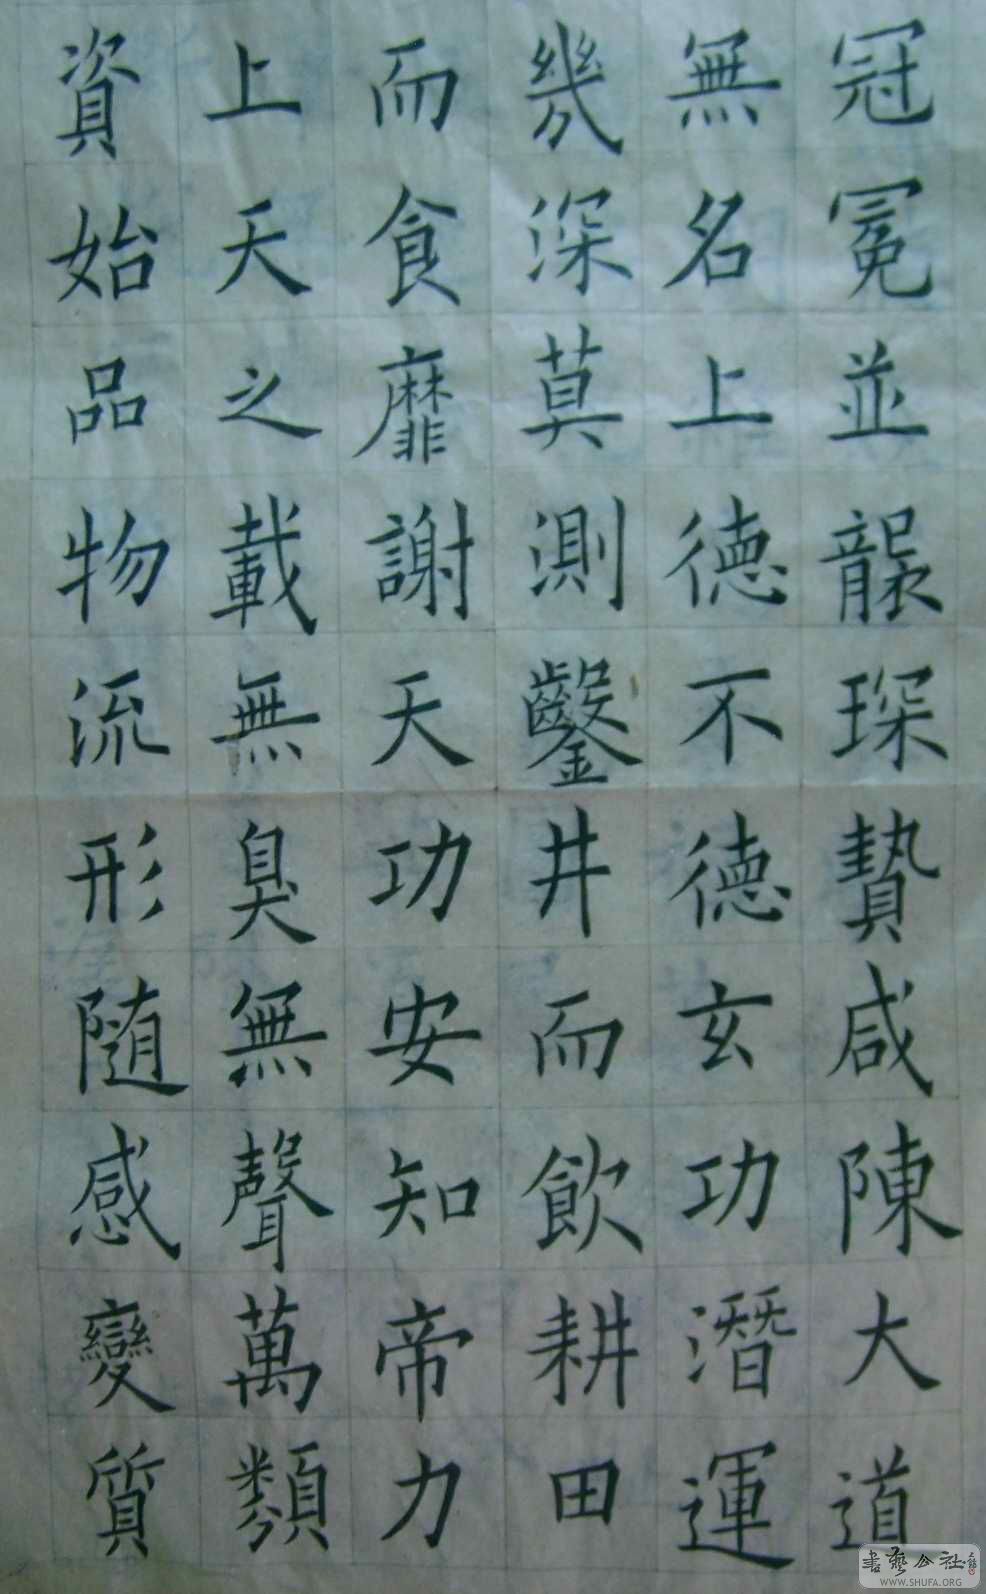 冠冕並襲琛贄咸陳大道
無名上德不德玄功潛運
幾深莫測鑿井而飲耕田
而食靡謝天功安知帝力
上天之載無臭無聲萬類
資始品物流形随感變質
書藝公社
WWW.SHUFA.ORG